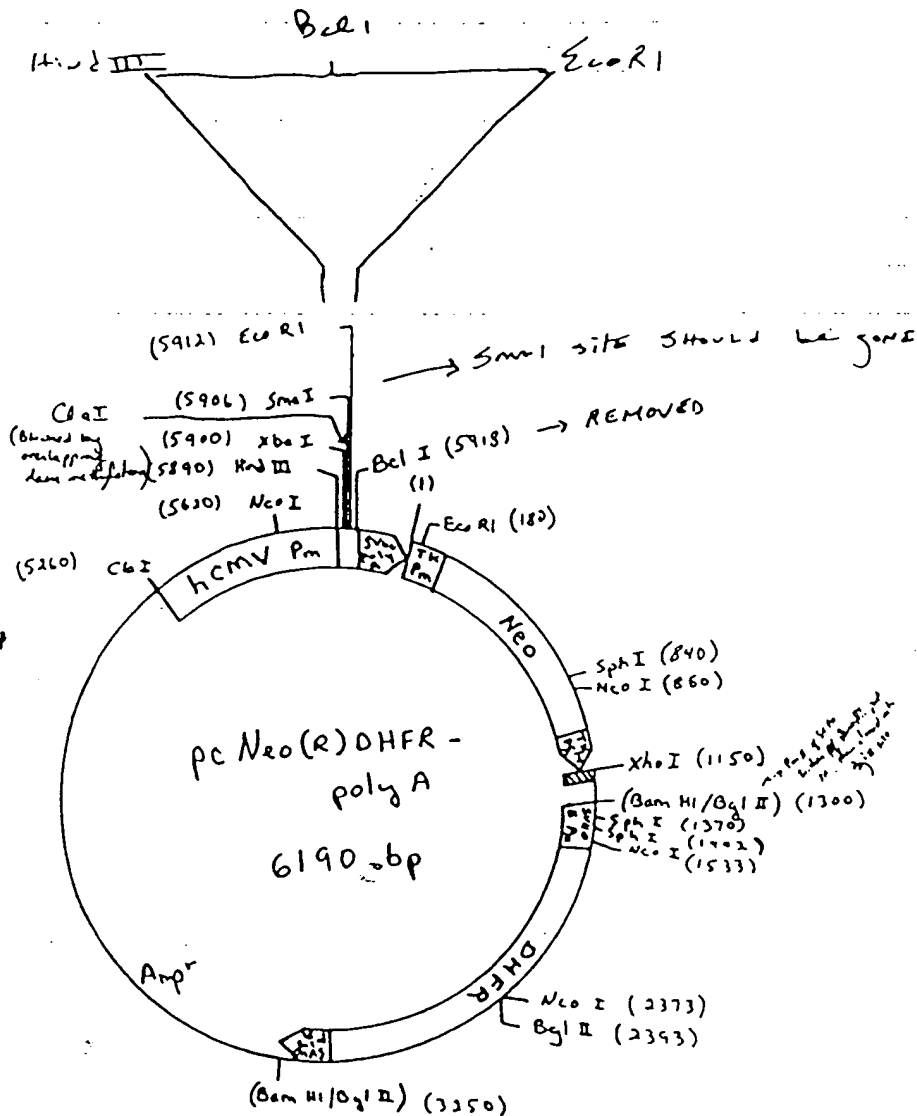 Bcl 1
Hind III
EcoR1
(5912) Eco R1
→ Sma1 site SHOULD be gone
(5906) Sma I
ClaI
(Blocked by overlapping dam methylation)
(5900) Xba I
(5890) Hind III
Bcl I (5918) → REMOVED
(1)
(5620) NcoI
EcoR1 (182)
(5260) ClaI
hCMV Pm
SV40 poly A
TK Pm
Neo
Sph I (840)
Nco I (860)
TK
Xho I (1150)
(Bam HI/Bgl II) (1300)
Sph I (1370)
Sph I
Nco I (1533)
pc Neo(R) DHFR -
poly A
6190 bp
DHFR
Amp r
Nco I (2373)
Bgl II (2393)
(Bam HI/Bgl II) (3250)